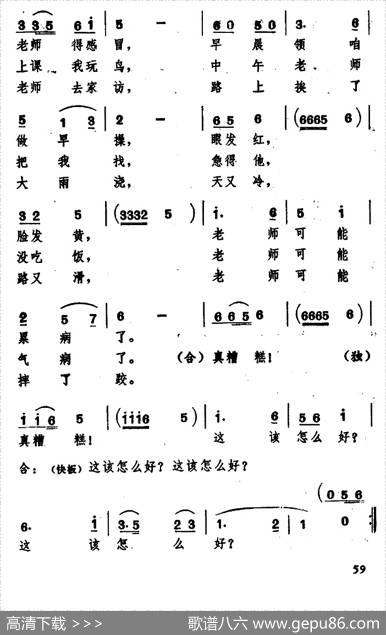 3 3 5 6 i | 5 — | 6 0 5 0 | 3. 6 |
老师 得感 冒， 早 晨 领 咱
上课 我玩 鸟， 中 午 老 师
老师 去家 访， 路 上 挨 了
5 1 3 | 2 — | 6 5 6 | (6665 6) |
做 早 操， 眼发 红，
把 我 找， 急得 他，
大 雨 浇， 天又 冷，
3 2 5 | (3332 5) | i. 6 | 5 i |
脸发 黄， 老 师 可 能
没吃 饭， 老 师 可 能
路又 滑， 老 师 可 能
2 5 7 | 6 — | 6 6 5 6 | (6665 6) |
累 病 了。
气 病 了。 (合)真糟 糕! (独)
摔 了 跤。
i i 6 5 | (i i i 6 5) | i. 6 | 5 6 i |
真糟 糕! 这 该 怎么 好?
合: (快板) 这该怎么好? 这该怎么好?
(0 5 6
6. i | 3. 5 2 3 | 1. 2 | 1 0 :||
这 该 怎 么 好?
59
高清下载 >>> 歌谱八六 www.gepu86.com